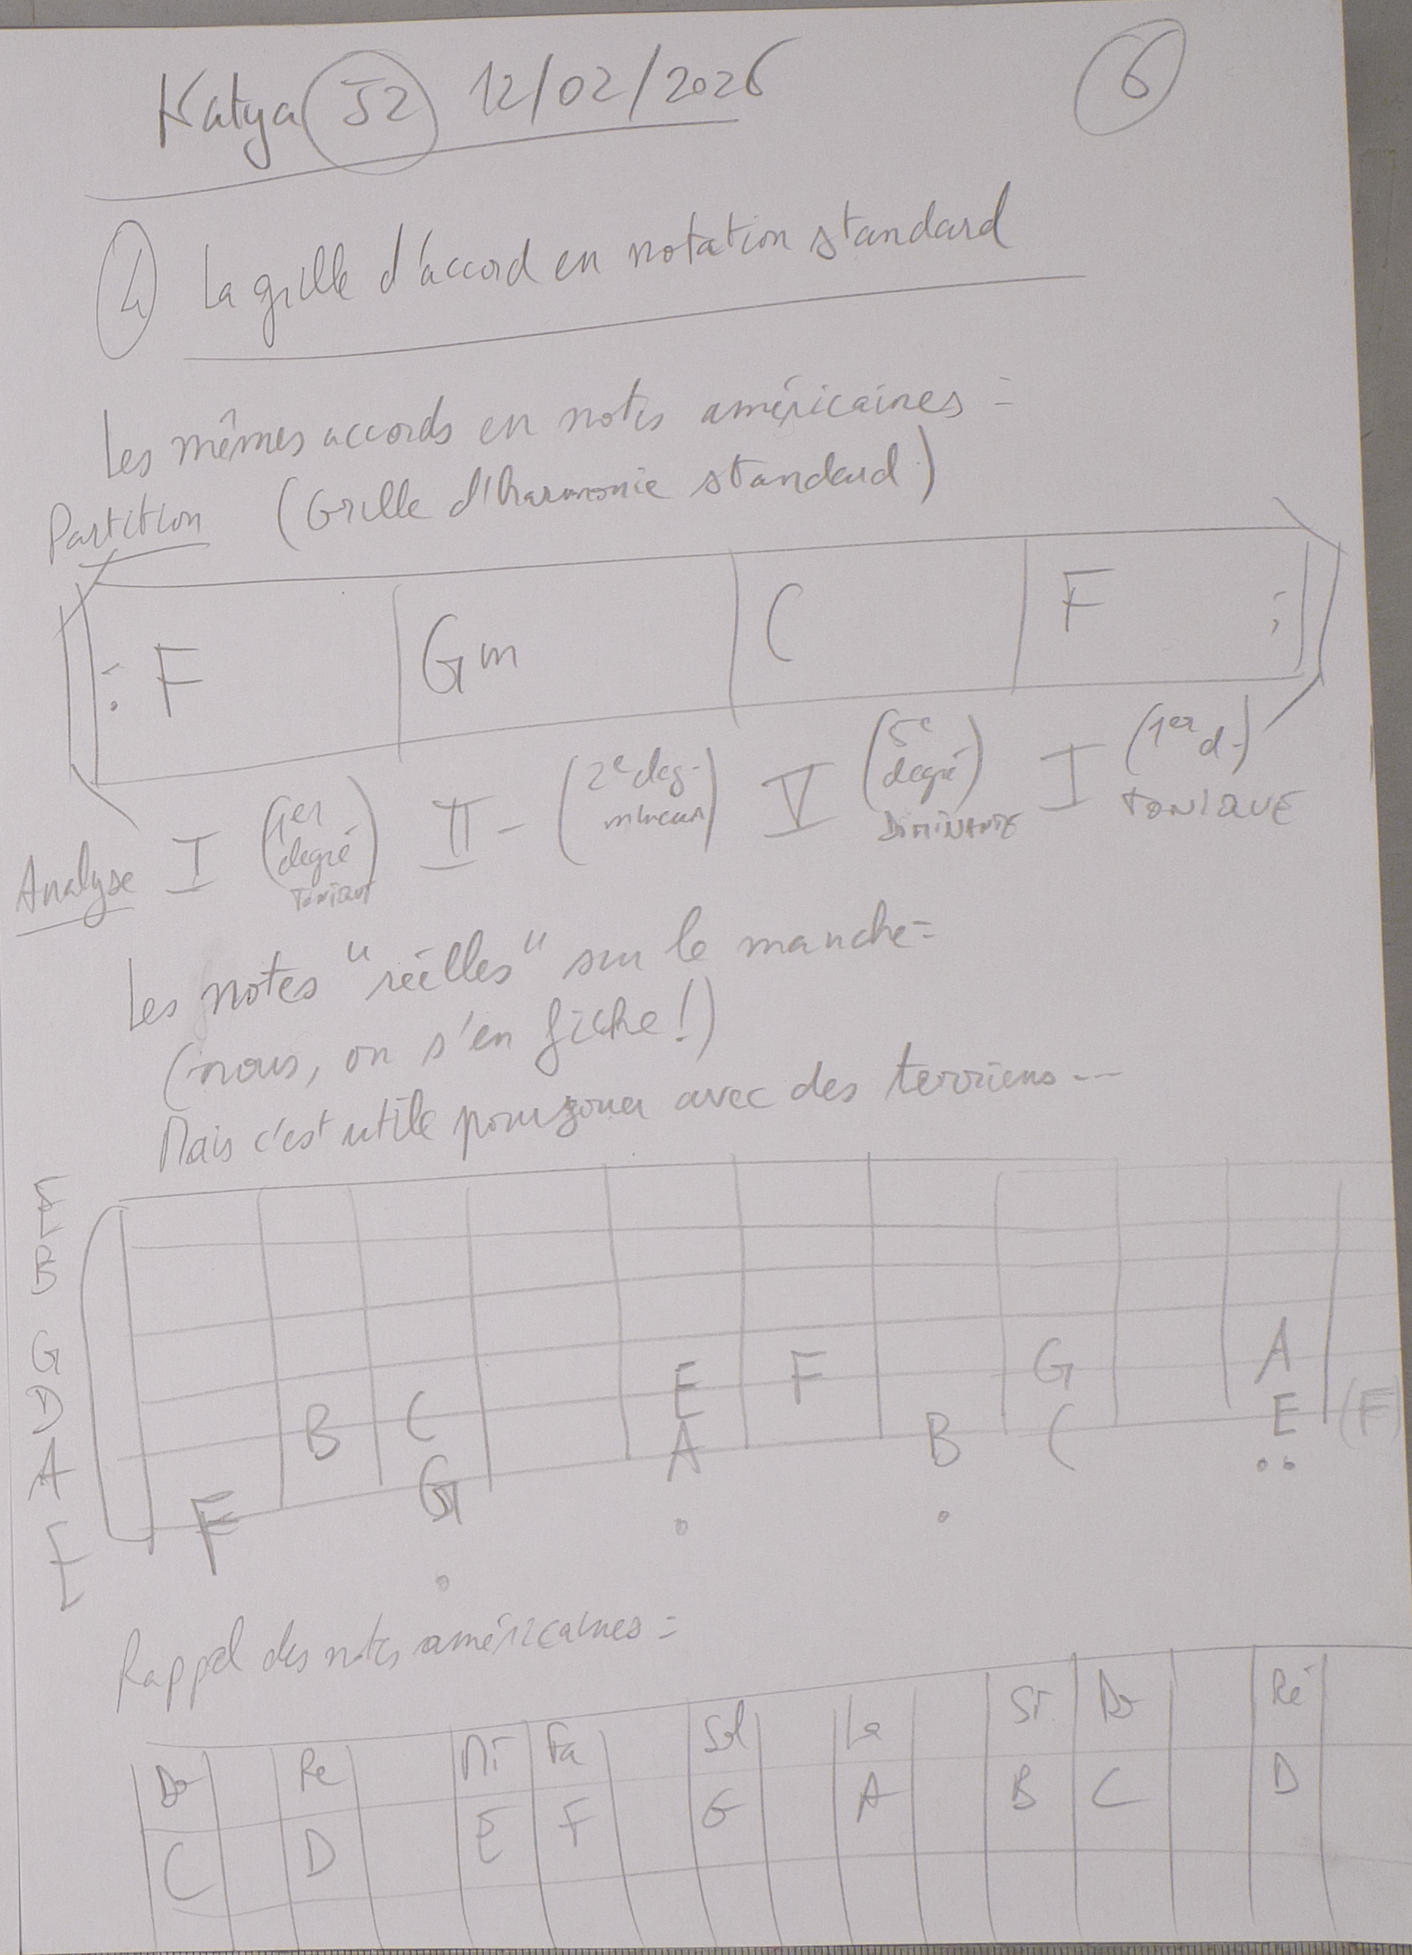 Katya 52 12/02/2026 6
4 La grille d'accord en notation standard
Les mêmes accords en notes américaines =
Partition (Grille d'harmonie standard)
: F Gm C F :
Analyse I (1er degré TONIQUE) II - (2e deg. mineur) V (5e degré DOMINANTE) I (1er d.) TONIQUE
Les notes "réelles" sur le manche =
(nous, on s'en fiche !)
Mais c'est utile pour jouer avec des terriens ...
E
B
G
D E F G A
A B C A B C E (F)
E F G
Rappel des notes américaines =
Do Re Mi Fa Sol La Si Do Ré
C D E F G A B C D